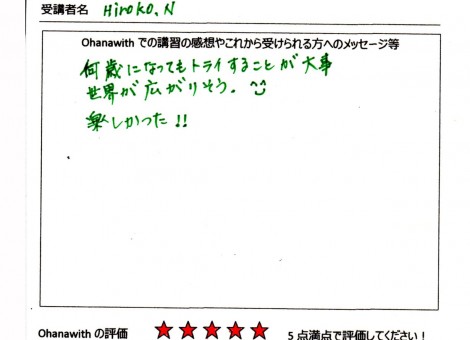 受講者名 Hiroko.N
Ohanawith での講習の感想やこれから受けられる方へのメッセージ等
何歳になってもトライすることが大事
世界が広がりそう。
楽しかった!!
Ohanawith の評価 ★★★★★ 5 点満点で評価してください!